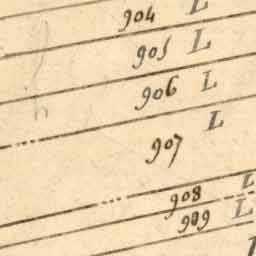 904 L
905 L
906 L
907 L
908 L
909 L